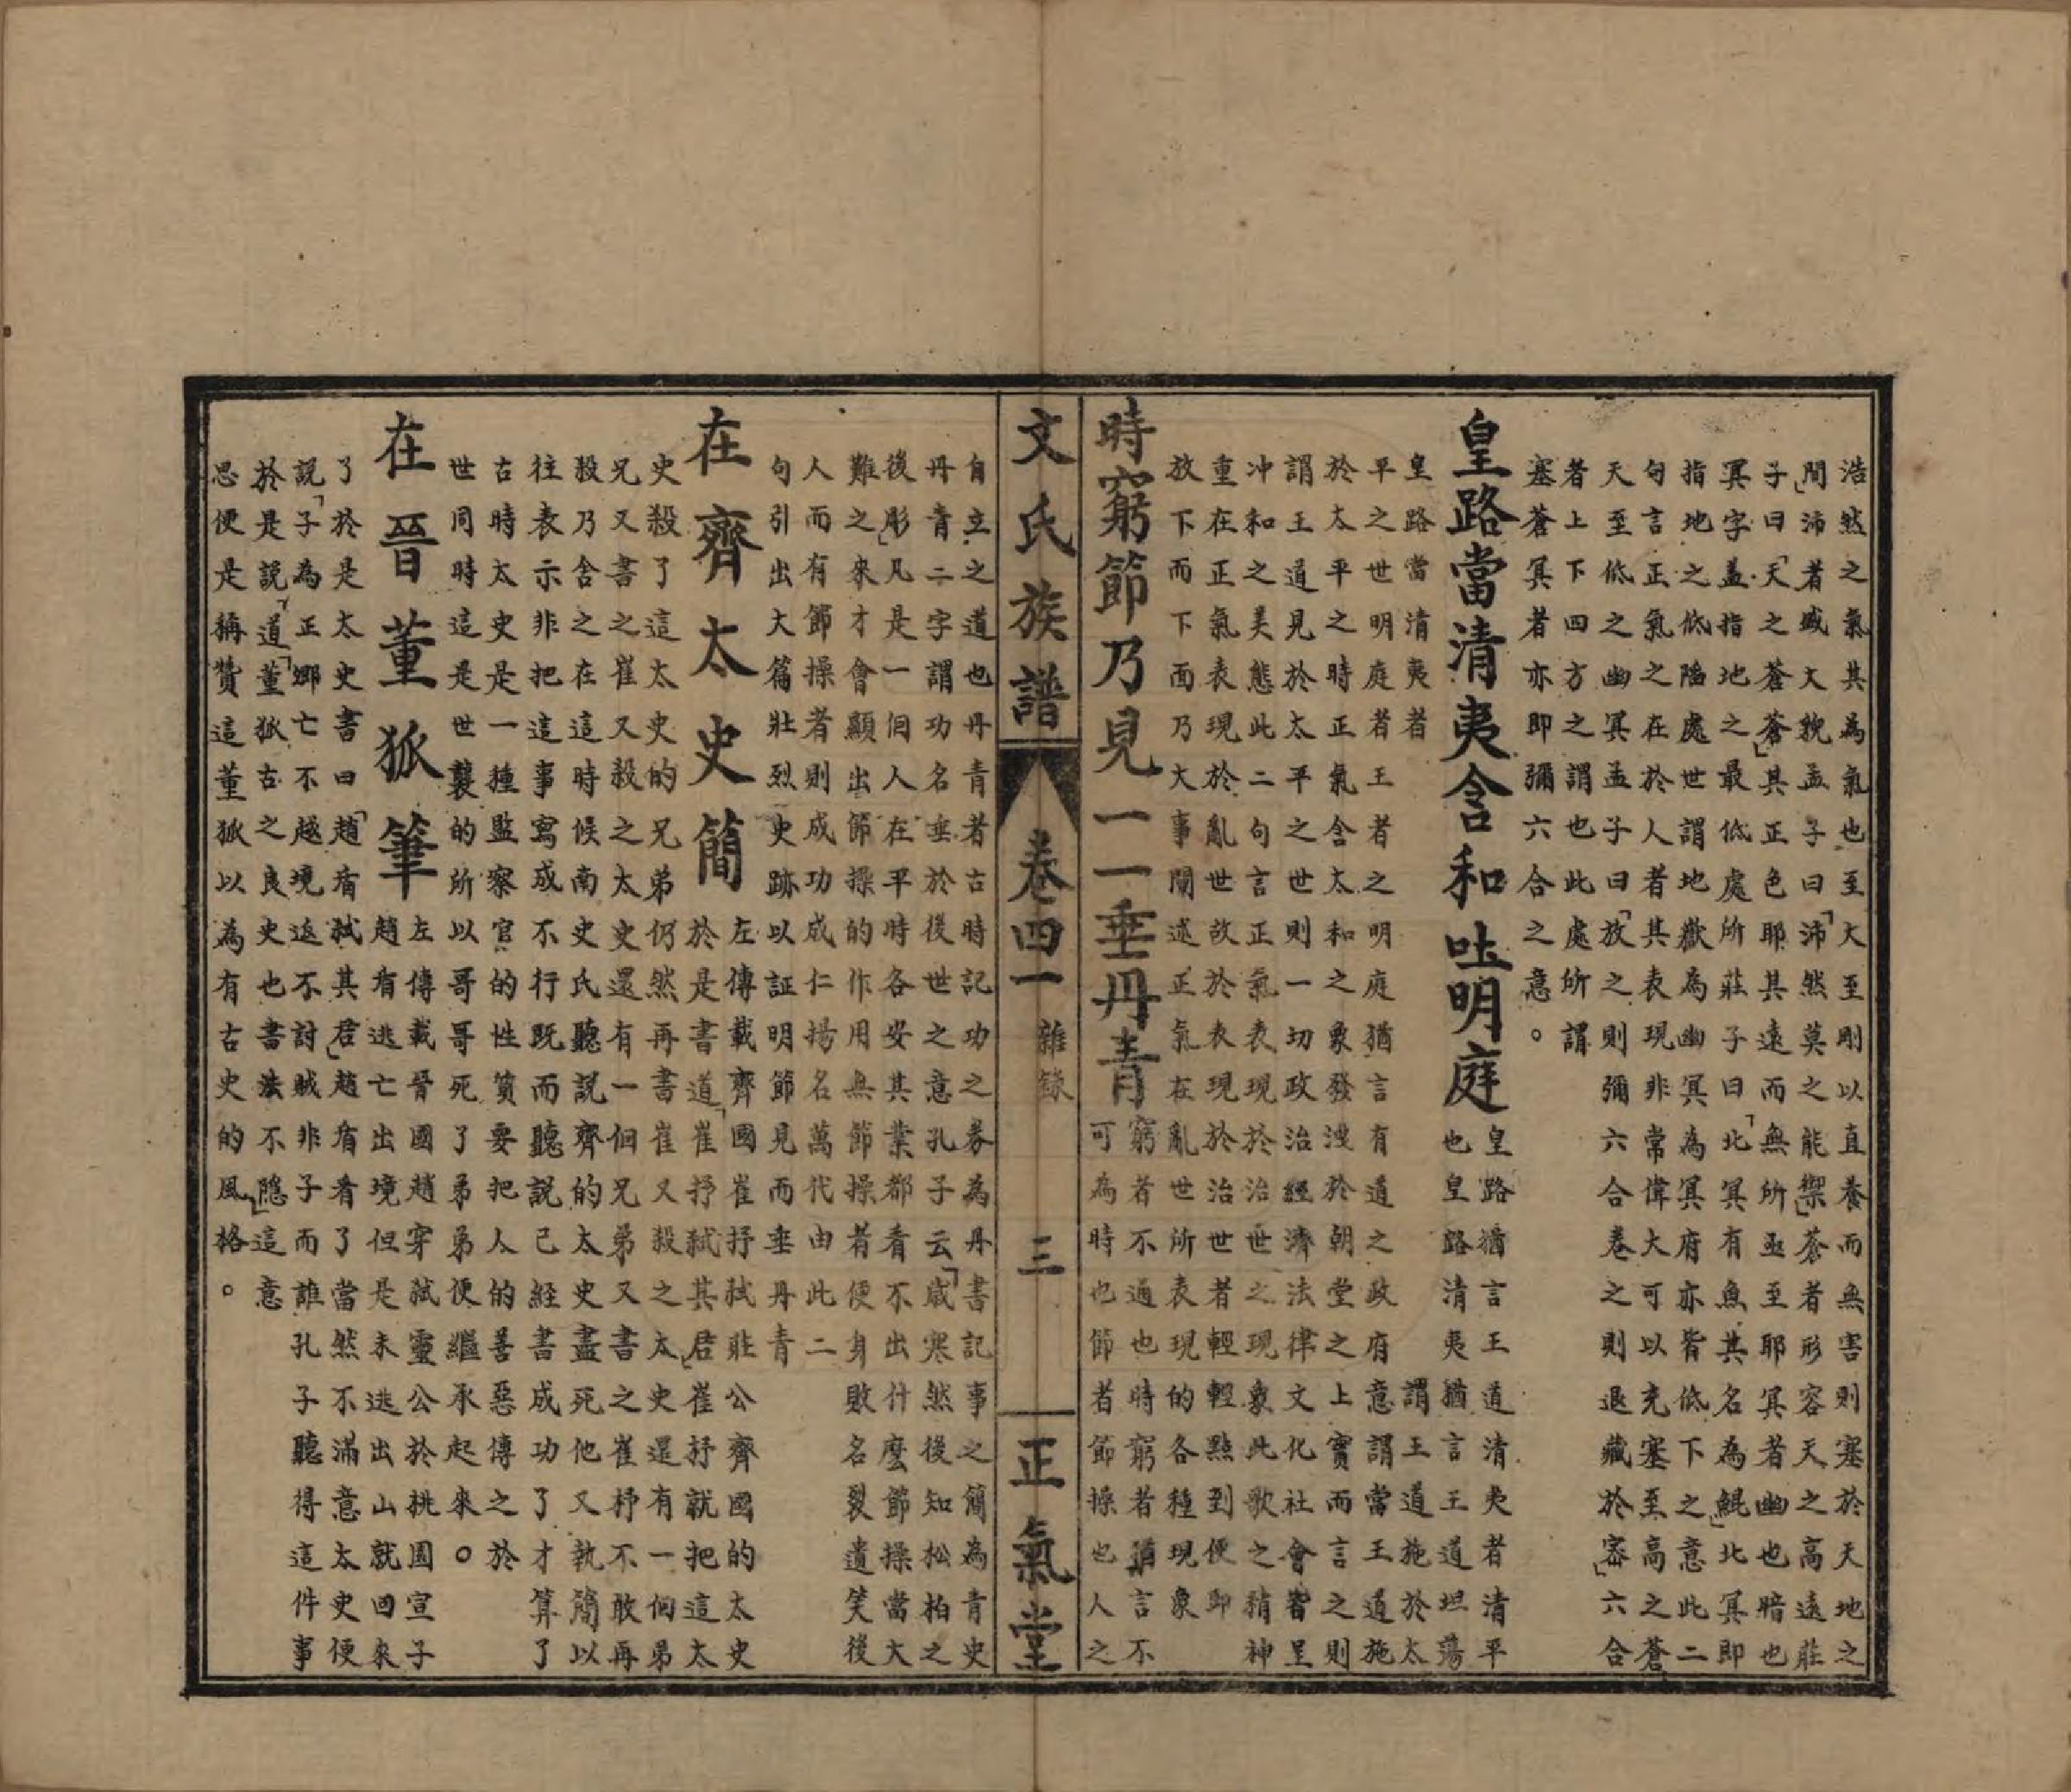 浩然之氣其為氣也至大至剛以直養而無害則塞於天地之
間」沛者盛大貌孟子曰「沛然莫之能禦」蒼者形容天之高遠莊
子曰「天之蒼蒼」其正色耶其遠而無所亟至耶冥者幽也暗也
冥字蓋指地之最低處所莊子曰「北冥有魚其名為鯤」北冥即
指地之低陷處世謂地獄為幽冥為冥府亦皆低下之意此二
句言正氣之在於人者其表現非常偉大可以充塞至高之蒼
天至低之幽冥孟子曰「放之則彌六合卷之則退藏於密」六合
者上下四方之謂也此處所謂
塞蒼冥者亦即彌六合之意。
皇路當清夷含和吐明庭
皇路猶言王道清夷者清平
也皇路清夷猶言王道坦蕩
皇路當清夷者
謂王道施於太
平之世明庭者王者之明庭猶言有道之政府意謂當王道施
於太平之時正氣含太和之象發洩於朝堂之上實而言之則
謂王道見於太平之世則一切政治經濟法律文化社會皆呈
冲和之美態此二句言正氣表現於治世之現象此歌之精神
重在正氣表現於亂世故於表現於治世者輕輕點到便即
放下而下面乃大事闡述正氣在亂世所表現的各種現象
時窮節乃見一一垂丹青
窮者不通也時窮者猶言不
可為時也節者節操也人之
文氏族譜
卷四一
雜錄
三
正氣堂
自立之道也丹青者古時記功之券為丹書記事之簡為青史
丹青二字謂功名垂於後世之意孔子云「歲寒然後知松柏之
後彫」凡是一個人在平時各安其業都看不出什麼節操當大
難之來才會顯出節操的作用無節操者便身敗名裂遺笑後
人而有節操者則成功成仁揚名萬代由此二
句引出大篇壯烈史跡以証明節見而垂丹青
在齊太史簡
左傳載齊國崔抒弒莊公齊國的太史
於是書道「崔抒弒其君」崔抒就把這太
史殺了這太史的兄弟仍然再書崔又殺之太史還有一個弟
兄又書之崔又殺之太史還有一個兄弟又書之崔抒不敢再
殺乃舍之在這時候南史氏聽説齊的太史盡死他又執簡以
往表示非把這事寫成不行既而聽説已經書成功了才算了
古時太史是一種監察官的性質要把人的善惡傳之於
世同時這是世襲的所以哥哥死了弟弟便繼承起來。
在晉董狐筆
左傳載晉國趙穿弒靈公於桃園宣子
趙盾逃亡出境但是未逃出山就回來
了於是太史書曰「趙盾弒其君」趙盾看了當然不滿意太史便
説「子為正卿亡不越境返不討賊非子而誰孔子聽得這件事
於是説「道」董狐古之良史也書法不隱」這意
思便是稱贊這董狐以為有古史的風格。